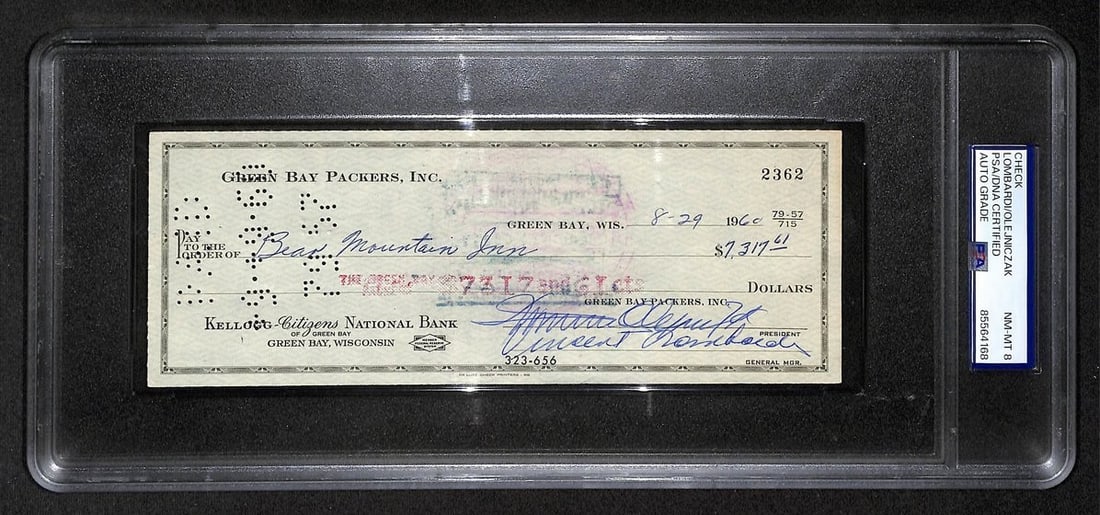 GREEN BAY PACKERS, INC. 2362
GREEN BAY, WIS. 8-29 1960 79-57
715
PAY
TO THE
ORDER OF Bear Mountain Inn $7,317 61
7317 and 61 cts DOLLARS
GREEN BAY PACKERS, INC.
KELLOGG-Citizens NATIONAL BANK
OF GREEN BAY
GREEN BAY, WISCONSIN
PRESIDENT
Vincent Lombardi
323-656 GENERAL MGR.
CHECK
LOMBARDI/OLEJNICZAK
PSA/DNA CERTIFIED
AUTO GRADE NM-MT 8
PSA 85564168